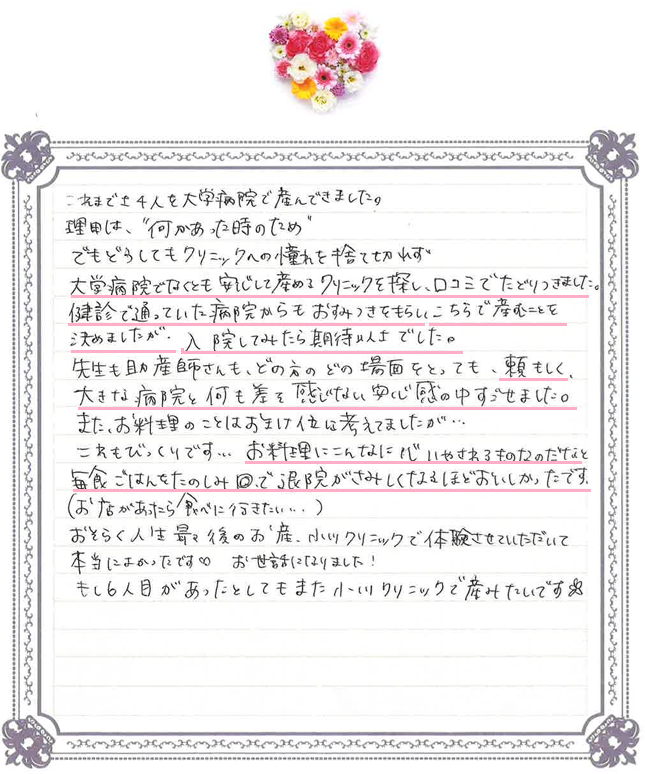 これまでは4人を大学病院で産んできました。
理由は、"何かあった時のため"
でもどうしてもクリニックへの憧れを捨て切れず
大学病院でなくとも安心して産めるクリニックを探し、口コミでたどりつきました。
健診で通っていた病院からもおすみつきをもらいこちらで産むことを
決めましたが、入院してみたら期待以上でした。
先生も助産師さんも、どの方のどの場面をとっても、頼もしく、
大きな病院と何も差を感じない安心感の中すごせました。
また、お料理のことはおまけ位に考えてましたが…
これもびっくりです… お料理にこんなに心いやされるものなのだなと
毎食ごはんをたのしみ で退院がさみしくなるほどおいしかったです。
(お店があったら食べに行きたい…)
おそらく人生最後のお産、小川クリニックで体験させていただいて
本当によかったです♡ お世話になりました!
もし6人目があったとしてもまた小川クリニックで産みたいです